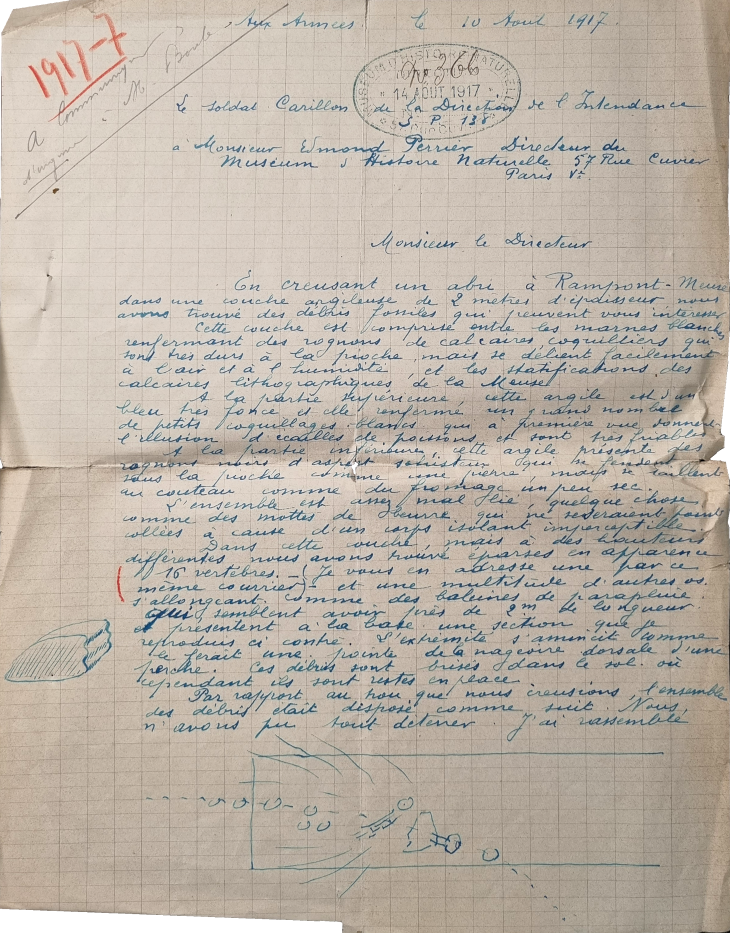 Aux Armées. le 10 Août 1917.
1917-7
A communiquer
d'urgence à M. Boule
MUSEUM D'HISTOIRE NATURELLE
N° 366
14 AOUT 1917
Le soldat Carillon de la Direction de l'Intendance
S.P. 138
à Monsieur Edmond Perrier Directeur du
Muséum d'Histoire Naturelle 57 Rue Cuvier
Paris Ve.
Monsieur le Directeur
En creusant un abri à Rampont-Meuse
dans une couche argileuse de 2 mètres d'épaisseur nous
avons trouvé des débris fossiles qui peuvent vous intéresser
Cette couche est comprise entre les marnes blanches
renfermant des rognons de calcaires coquilliers qui
sont très durs à la pioche, mais se délient facilement
à l'air et à l'humidité, et les stratifications des
calcaires lithographiques de la Meuse.
A la partie supérieure, cette argile est d'un
bleu très foncé et elle renferme un grand nombre
de petits coquillages blancs qui à première vue donnent
l'illusion d'écailles de poissons et sont très friables
A la partie inférieure, cette argile présente des
rognons noirs d'aspect qui se fendent
sous la pioche comme une pierre mais se taillent
au couteau comme du fromage un peu sec.
L'ensemble est assez mal lié, quelque chose
comme des mottes de beurre qui ne seraient point
collées à cause d'un corps isolant imperceptible.
Dans cette couche, mais à des hauteurs
différentes nous avons trouvé éparses en apparence
16 vertèbres. - (Je vous en adresse une par ce
même courrier) - et une multitude d'autres os
s'allongeant comme des baleines de parapluie
qui semblent avoir près de 2m de longueur
et présentent à la base une section que je
reproduis ci contre. L'extrémité s'amincit comme
le ferait une pointe de la nageoire dorsale d'une
perche. Ces débris sont brisés dans le sol où
cependant ils sont restés en place
Par rapport au trou que nous creusions, l'ensemble
des débris était disposé comme suit. Nous
n'avons pu tout déterrer. J'ai rassemblé